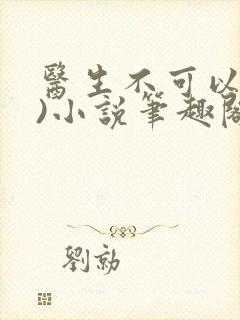 醫生不可以
)小說筆趣閣
劉勍